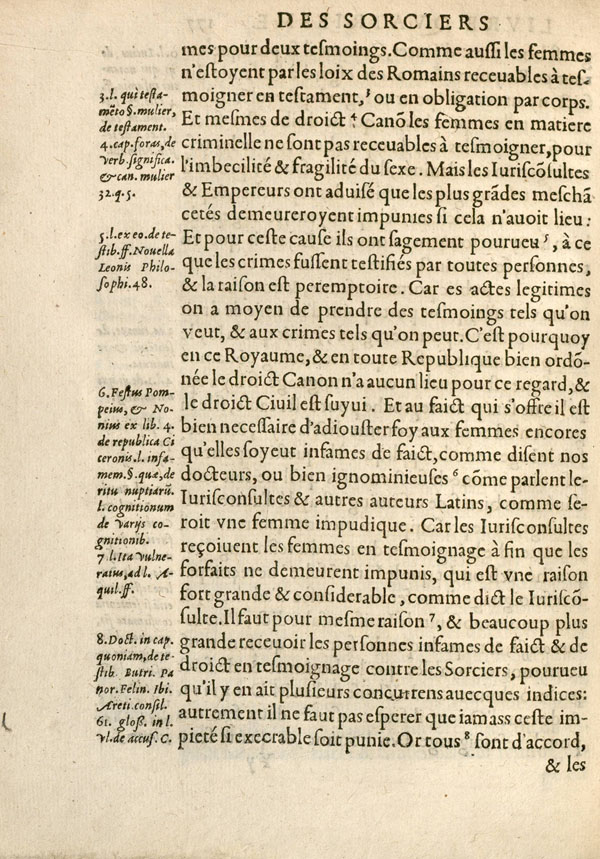 DES SORCIERS
mes pour deux tesmoings. Comme aussi les femmes
n'estoyent par les loix des Romains receuables à tes-
moigner en testament, 3 ou en obligation par corps.
Et mesmes de droict 4 Canõ les femmes en matiere
criminelle ne sont pas receuables à tesmoigner, pour
l'imbecilité & fragilité du sexe. Mais les Iuriscõsultes
& Empereurs ont aduisé que les plus grãdes meschã
cetés demeureroyent impunies si cela n'auoit lieu:
Et pour ceste cause ils ont sagement pourueu 5, à ce
que les crimes fussent testifiés par toutes personnes,
& la raison est peremptoire. Car es actes legitimes
on a moyen de prendre des tesmoings tels qu'on
veut, & aux crimes tels qu'on peut. C'est pourquoy
en ce Royaume, & en toute Republique bien ordõ-
née le droict Canon n'a aucun lieu pour ce regard, &
le droict Ciuil est suyui. Et au faict qui s'offre il est
bien necessaire d'adiouster foy aux femmes encores
qu'elles soyent infames de faict, comme disent nos
docteurs, ou bien ignominieuses 6 cõme parlent le-
Iurisconsultes & autres auteurs Latins, comme se-
roit vne femme impudique. Car les Iurisconsultes
reçoiuent les femmes en tesmoignage à fin que les
forfaits ne demeurent impunis, qui est vne raison
fort grande & considerable, comme dict le Iuriscõ-
sulte. Il faut pour mesme raison 7, & beaucoup plus
grande receuoir les personnes infames de faict & de
droict en tesmoignage contre les Sorciers, pourueu
qu'il y en ait plusieurs concurrens auecques indices:
autrement il ne faut pas esperer que iamass ceste im-
pieté si execrable soit punie. Or tous 8 sont d'accord,
& les
3. l. qui testa-
mẽto §. mulier,
de testament.
4. cap. foras, de
verb. significa.
& can. mulier
32. q. 5.
5. l. ex eo. de te-
stib. ff. Nouella
Leonis Philo-
sophi. 48.
6. Festus Pom-
peius, & No-
nius ex lib. 4.
de republica Ci
ceronis. l. infa-
mem. §. quæ, de
ritu nuptiarũ.
l. cognitionum
de varijs co-
gnitionib.
7. l. Ita vulne-
ratus, ad l. A-
quil. ff.
8. Doct. in cap.
quoniam, de te-
stib. Butri. Pa
nor. Felin. Ibi.
Areti. consil.
61. gloss. in l.
vl. de accus. C.